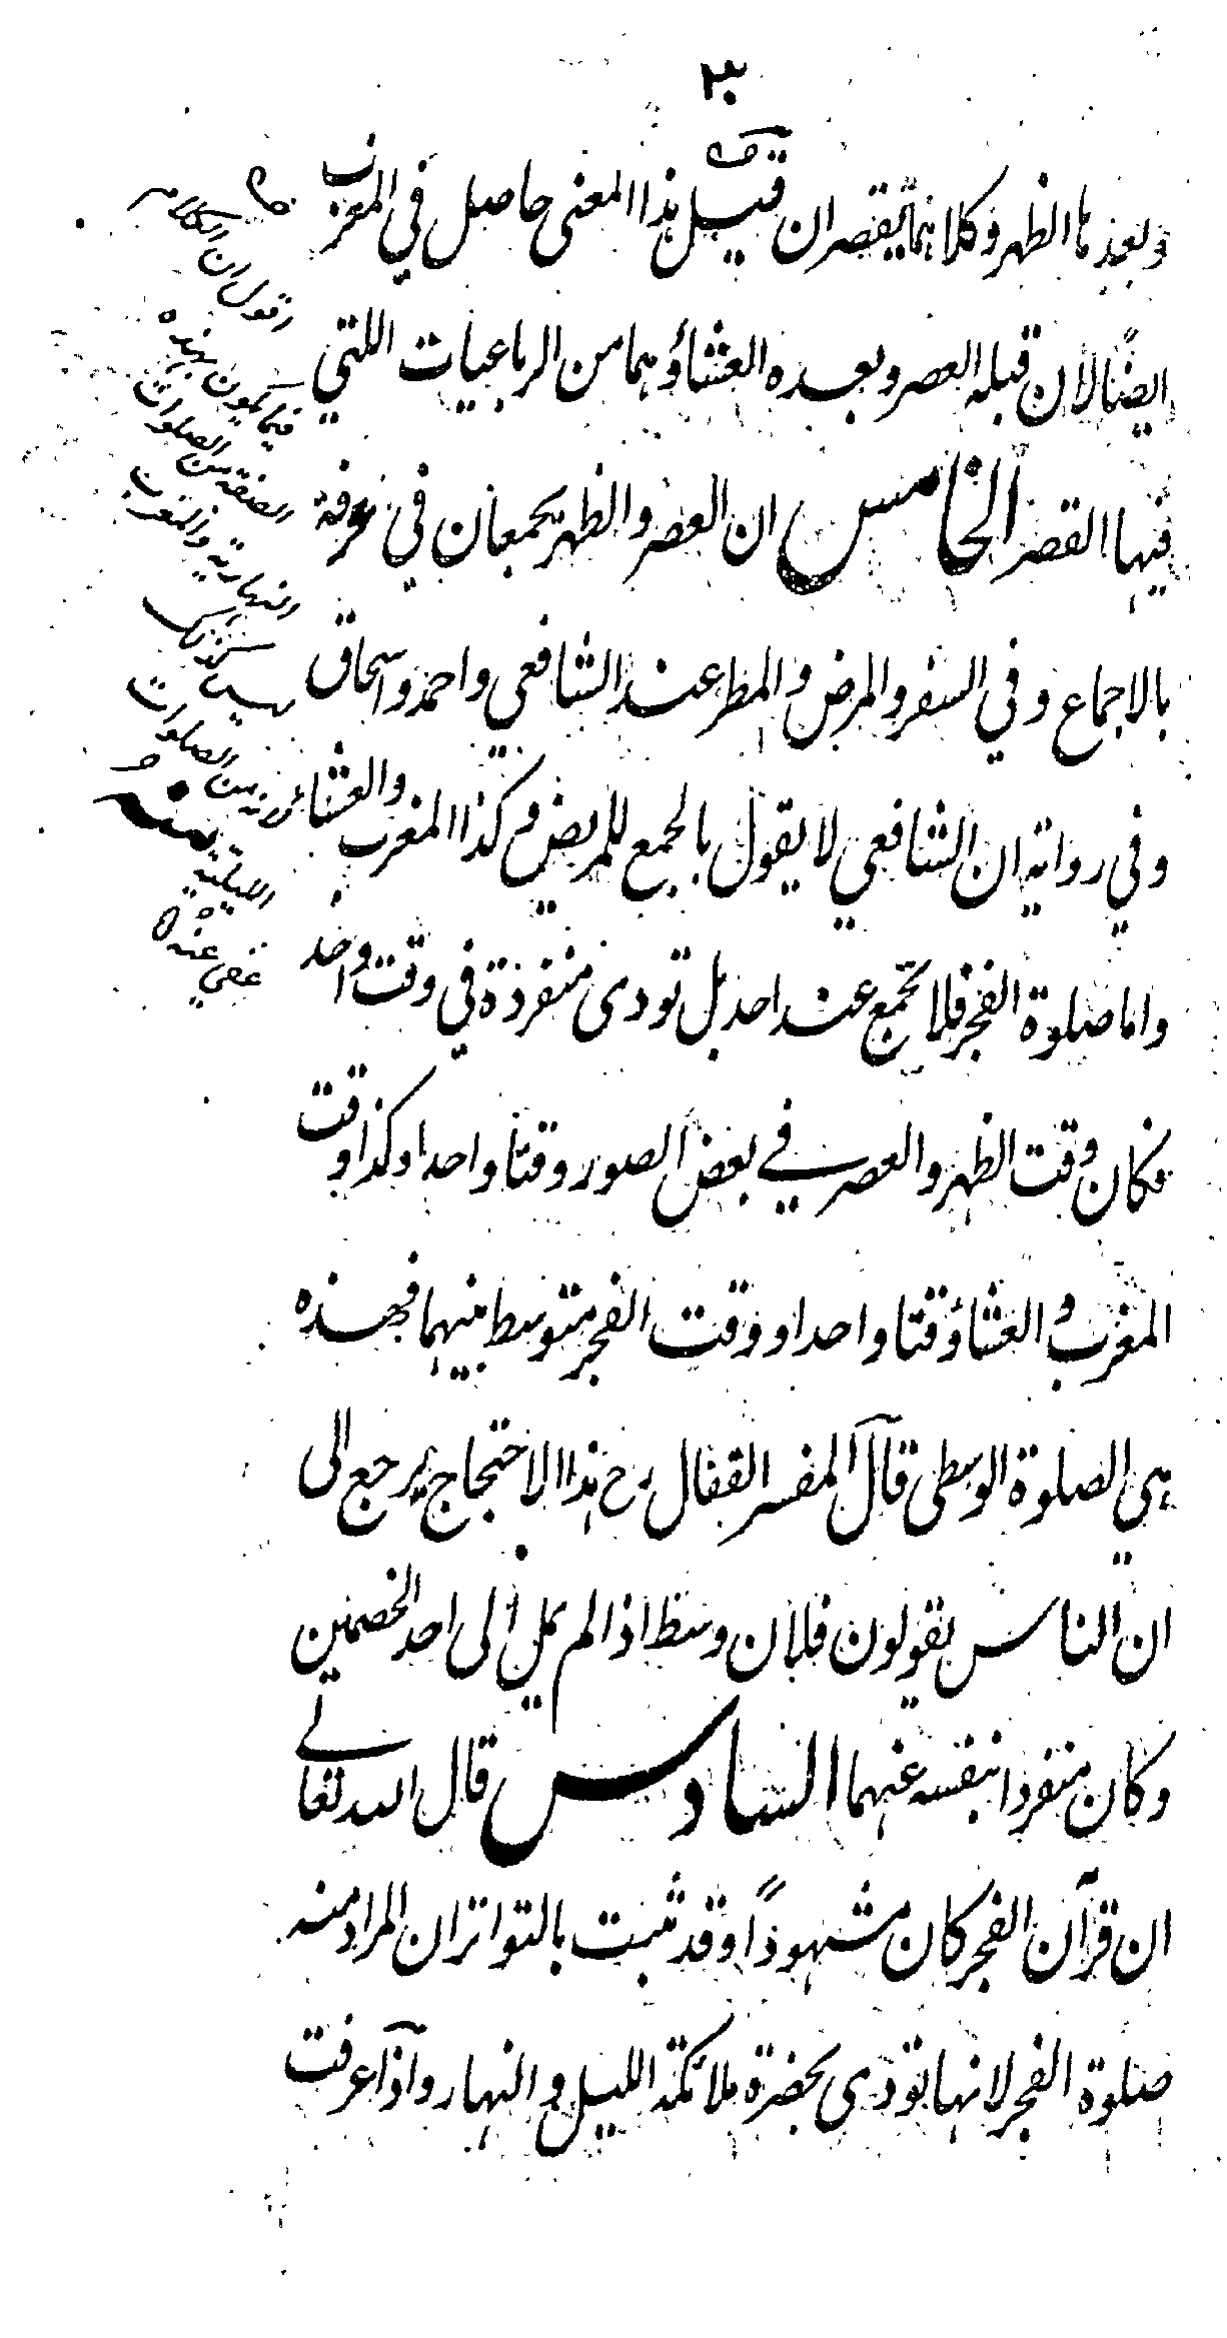 ٣٠
وبعدها الظهر وكلاهما يقصران قيل هذا المعنى حاصل في المغرب
ايضًا لان قبله العصر وبعده العشاء وهما من الرباعيات اللتي
فيها القصر الخامس ان العصر والظهر يجمعان في عرفة
بالاجماع وفي السفر والمرض والمطر عند الشافعي واحمد واسحاق
وفي رواية ان الشافعي لا يقول بالجمع للمريض وكذا المغرب والعشاء
واما صلوة الفجر فلا تجمع عند احد بل تودى منفردة في وقت واحد
فكان وقت الظهر والعصر في بعض الصور وقتا واحدا وكذا وقت
المغرب والعشاء وقتا واحدا ووقت الفجر متوسط بينهما فهذه
هي الصلوة الوسطى قال المفسر القفال رح هذا الاحتجاج يرجع الى
ان الناس يقولون فلان وسط اذا لم يمل الى احد الخصمين
وكان منفردا بنفسه عنهما السادس قال الله تعالى
ان قرآن الفجر كان مشهودًا وقد ثبت بالتواتر ان المراد منه
صلوة الفجر لانها تودى بحضرة ملائكة الليل والنهار واذا عرفت
اقول ان الكلام
فيما يكون بهذه
الصفة من الصلوات
النهارية والمغرب
ليس كذلك
لانه من الصلوات
الليلية منه
عفي عنه